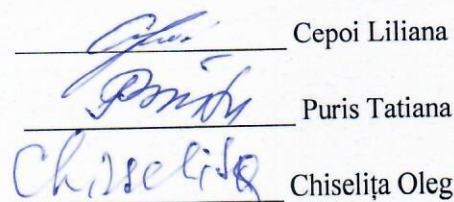 Cepoi Liliana
Puris Tatiana
Chiselita Chiselița Oleg